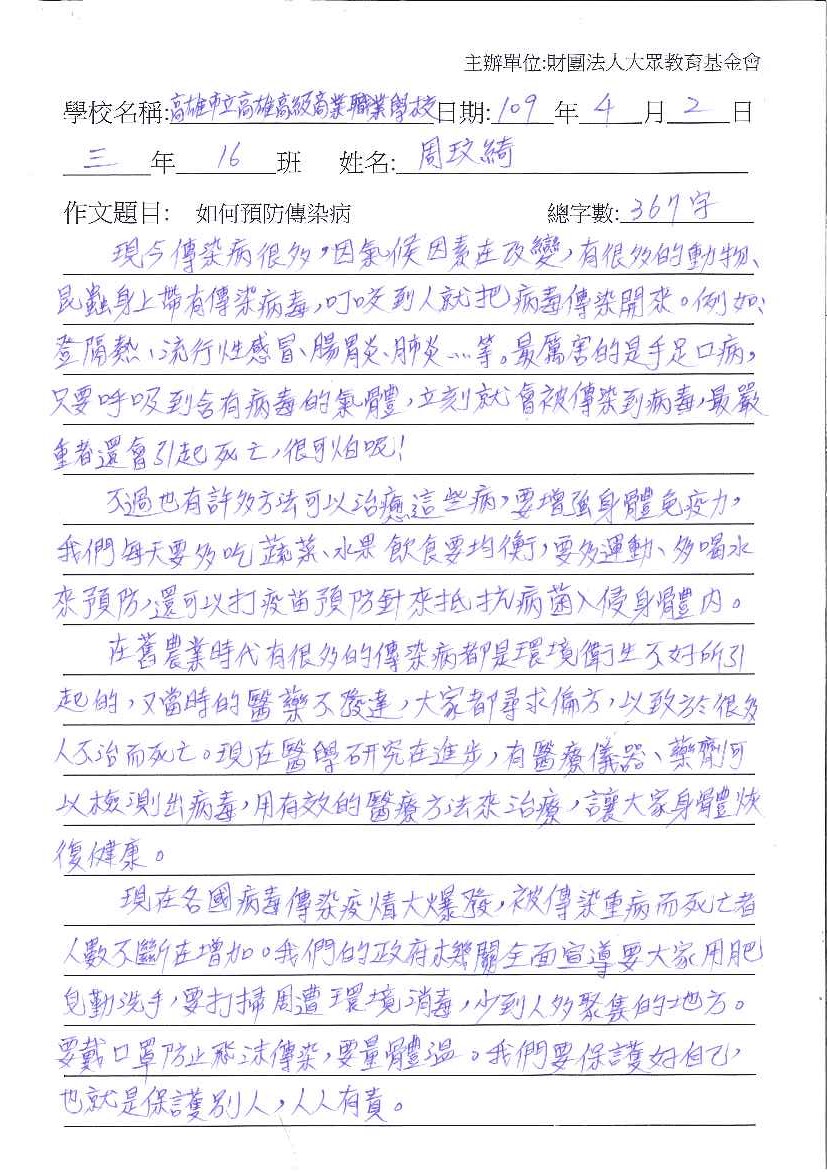 主辦單位:財團法人大眾教育基金會
學校名稱:高雄市立高雄高級商業職業學校日期:109年4月2日
三年16班 姓名:周玟綺
作文題目: 如何預防傳染病 總字數:367字
現今傳染病很多,因氣候因素在改變,有很多的動物、
昆蟲身上帶有傳染病毒,叮咬到人就把病毒傳染開來。例如:
登隔熱、流行性感冒、腸胃炎、肺炎…等。最厲害的是手足口病,
只要呼吸到含有病毒的氣體,立刻就會被傳染到病毒,最嚴
重者還會引起死亡,很可怕呢!
不過也有許多方法可以治癒這些病,要增強身體免疫力,
我們每天要多吃蔬菜、水果飲食要均衡,要多運動、多喝水
來預防,還可以打疫苗預防針來抵抗病菌入侵身體內。
在舊農業時代有很多的傳染病都是環境衛生不好所引
起的,又當時的醫藥不發達,大家都尋求偏方,以致於很多
人不治而死亡。現在醫學研究在進步,有醫療儀器、藥劑可
以檢測出病毒,用有效的醫療方法來治療,讓大家身體恢
復健康。
現在各國病毒傳染疫情大爆發,被傳染重病而死亡者
人數不斷在增加。我們的政府機關全面宣導要大家用肥
皂勤洗手,要打掃周遭環境消毒,少到人多聚集的地方。
要戴口罩防止飛沫傳染,要量體溫。我們要保護好自己,
也就是保護別人,人人有責。